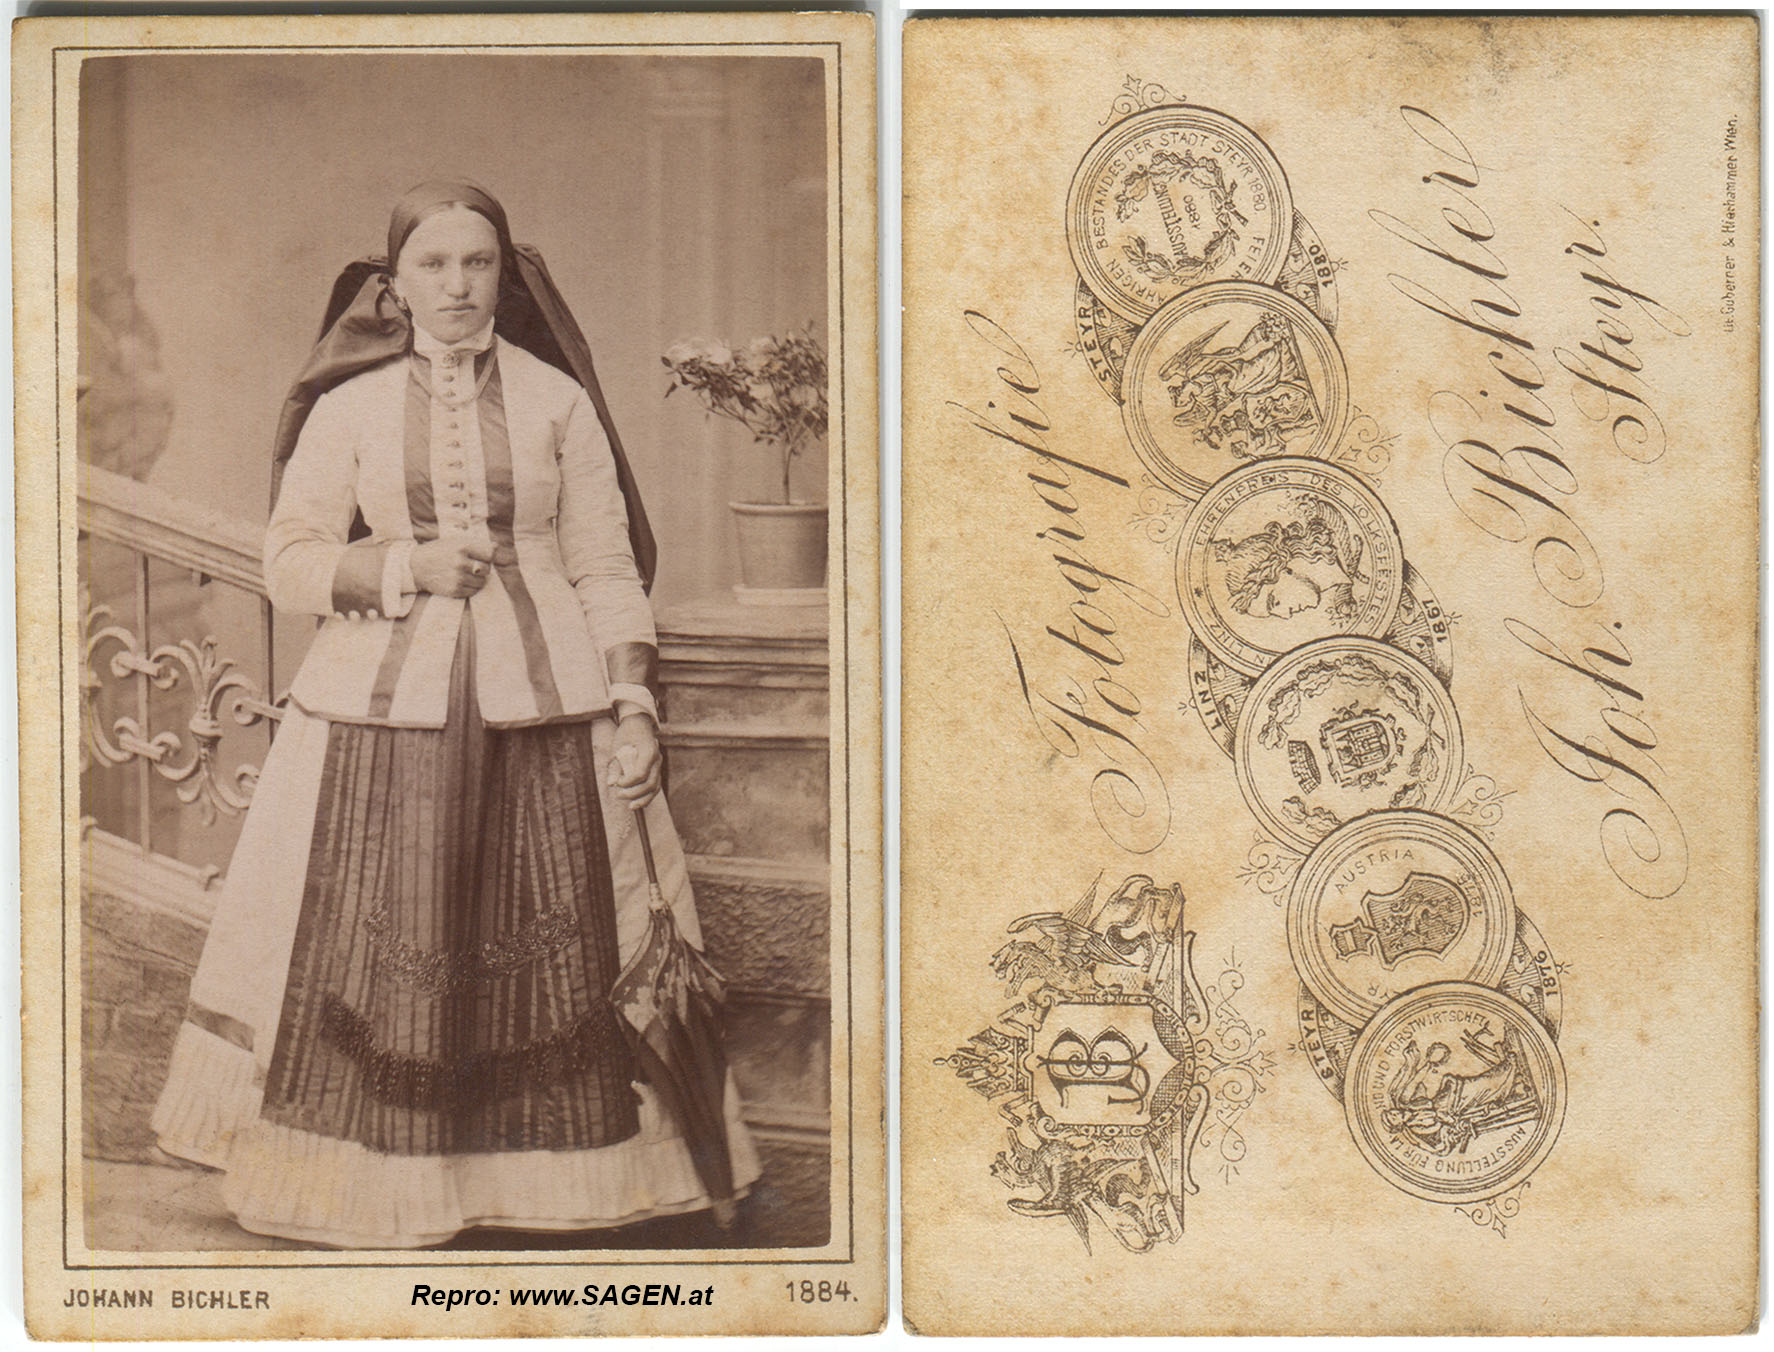 JOHANN BICHLER
Repro: www.SAGEN.at
1884.
Fotografie
Joh. Bichler
Steyr.
JB
BESTANDES DER STADT STEYR 1880 FEIER
JÄHRIGEN
AUSSTELLUNG
1880
STEYR
1880.
EHRENPREIS DES VOLKSFESTES IN LINZ
LINZ
1861
AUSTRIA
1876
STEYR
1876
AUSSTELLUNG FÜR LAND UND FORSTWIRTSCHFT
Lit. Guberner & Hierhammer Wien.